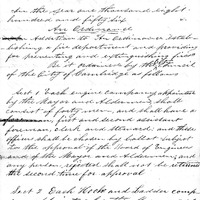 In the year one thousand eight
hundred and fifty six
An Ordinance
In Addition to "An Ordinance Estab-
lishing a fire department and providing
for preventing and extinguishing fires
Be it ordained by the Council
of the City of Cambridge as follows
Sect 1 Each engine company appointed
by the Mayor and Aldermen shall
consist of forty men, and shall have a
foreman, first and second assistant
foreman, clerk and steward, and these
officers shall be chosen by ballot subject
to the approval of the Board of Engineers
and of the Mayor and Aldermen, and
any person rejected shall not be returned
the second time for approval
Sect 2 Each Hook and Ladder comp